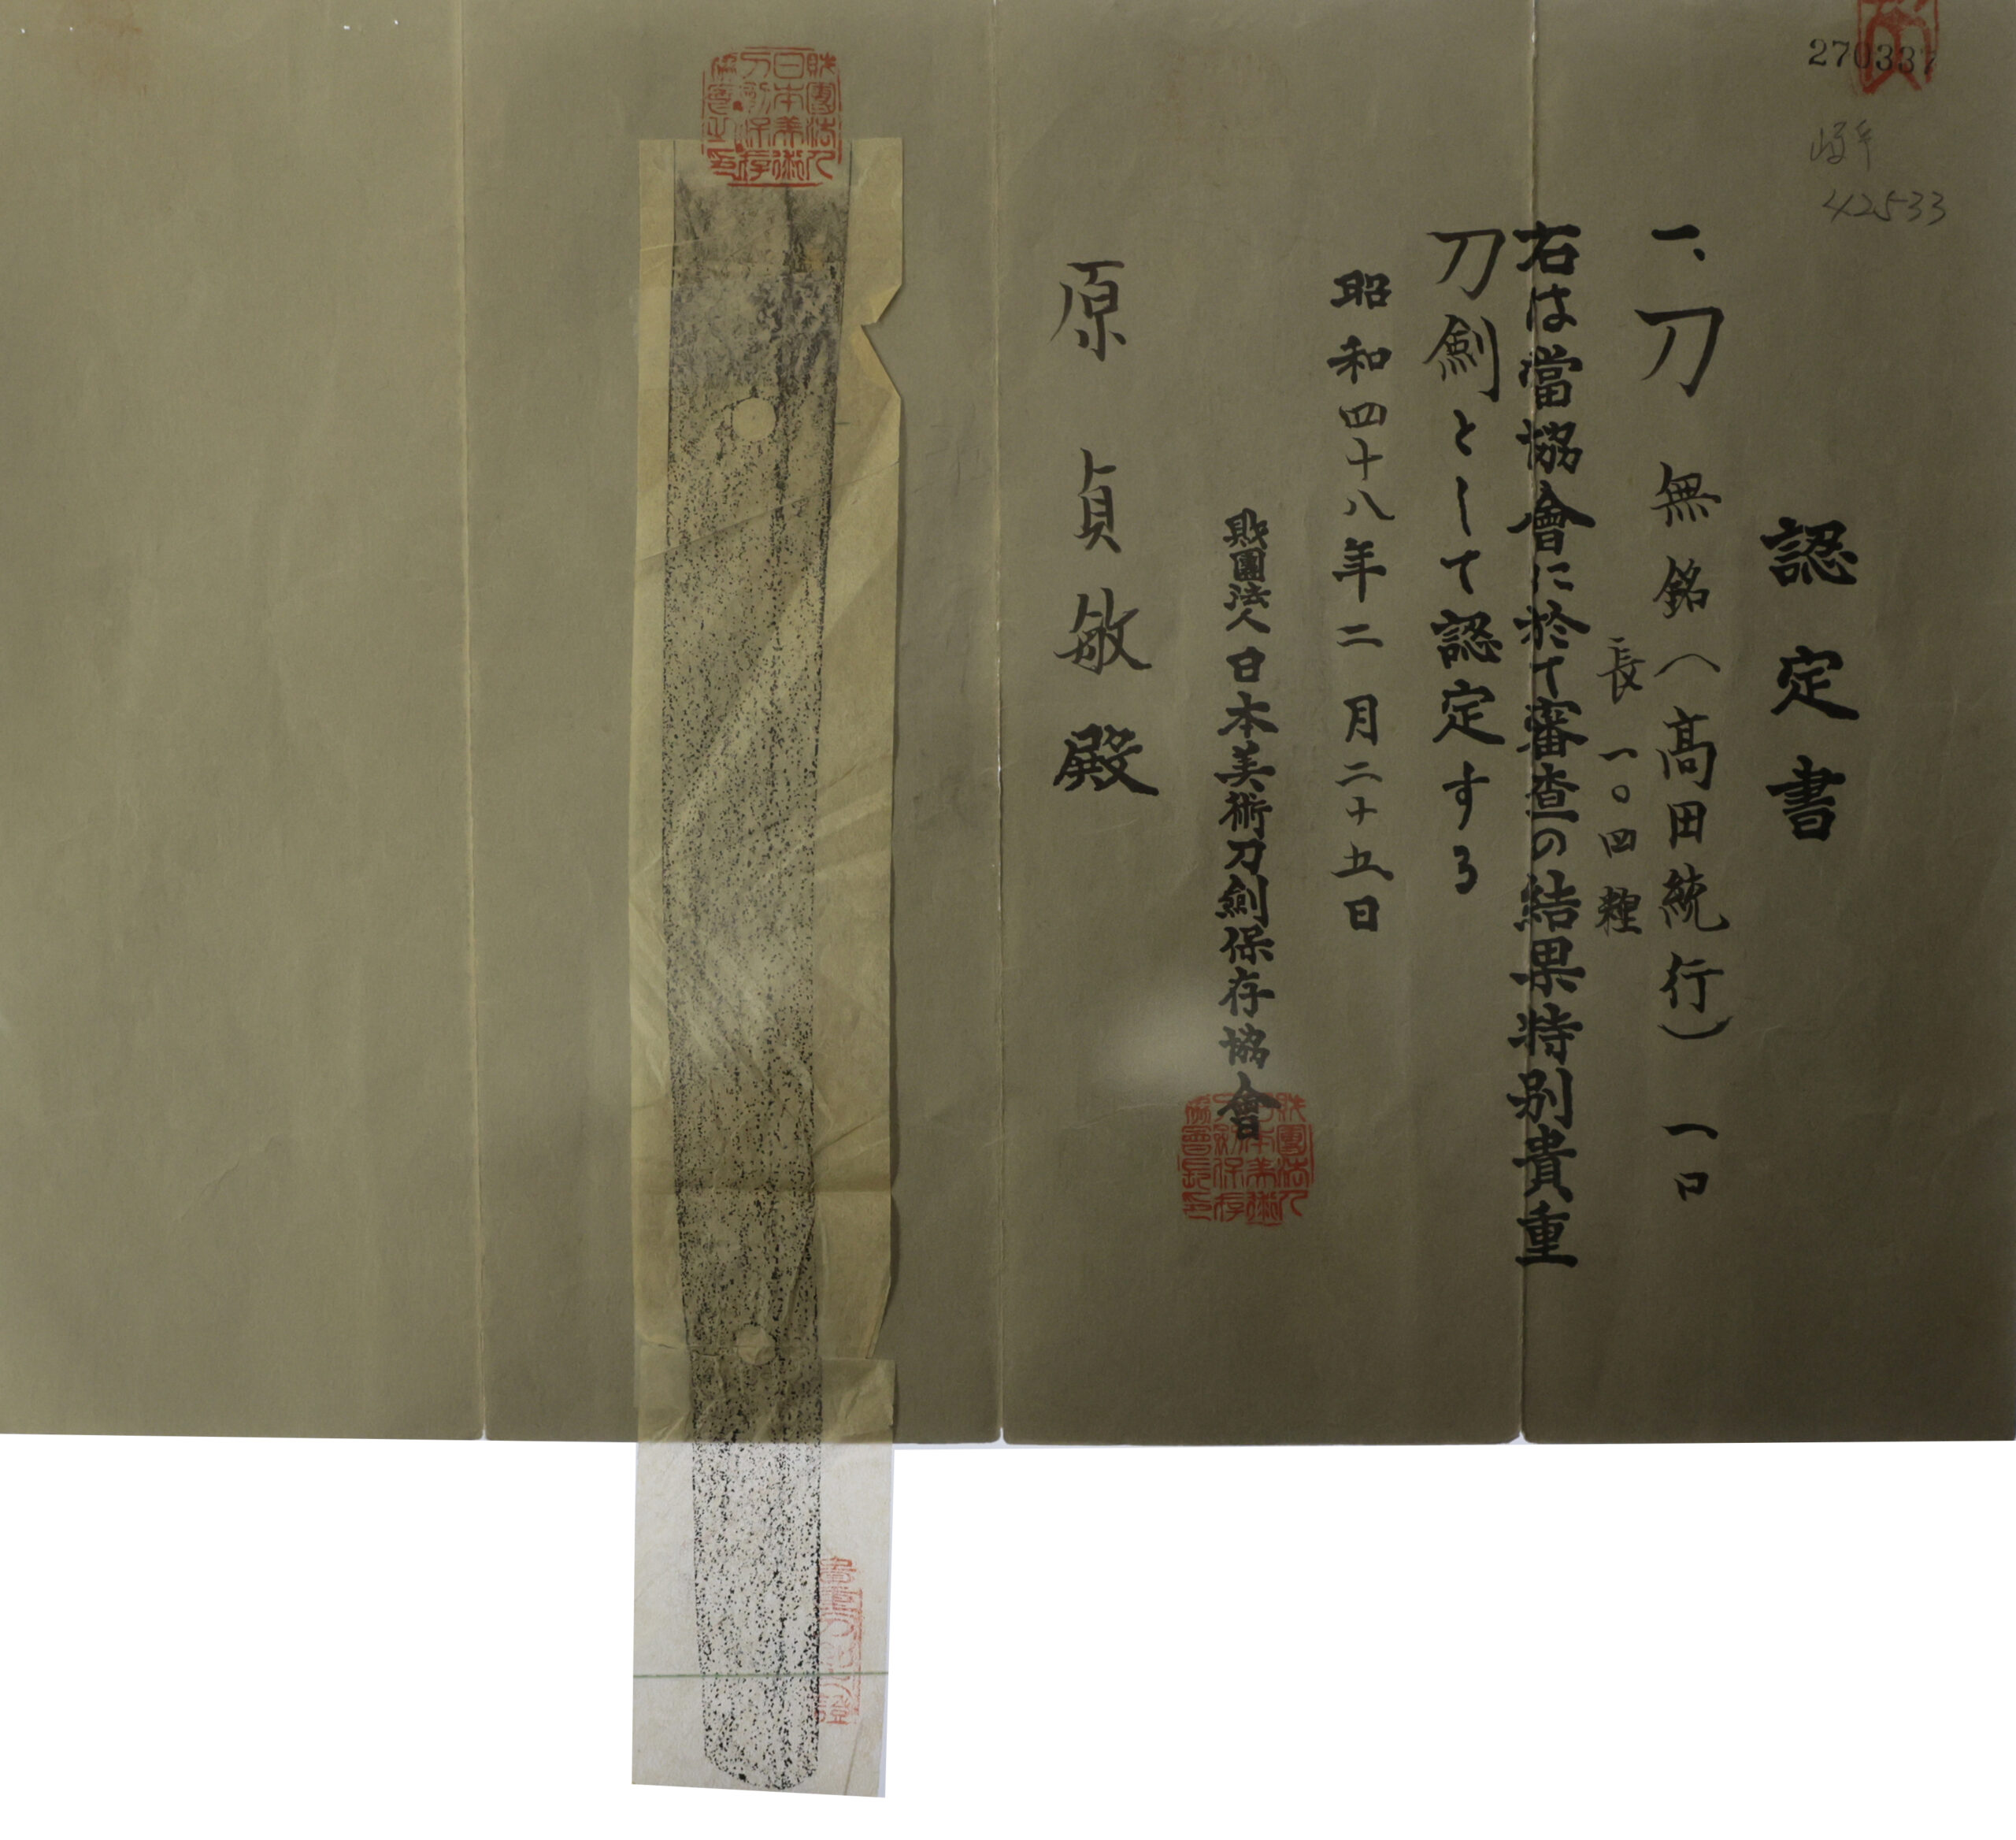 270337
42533
認定書
一、刀 無銘(高田統行) 一口
長 一〇四糎
右は當協會に於て審査の結果特別貴重
刀劍として認定する
昭和四十八年二月二十五日
財團法人日本美術刀劍保存協會
財團法人日本美術刀劍保存協會長印
原貞敏殿
財團法人日本美術刀劍保存協會之印